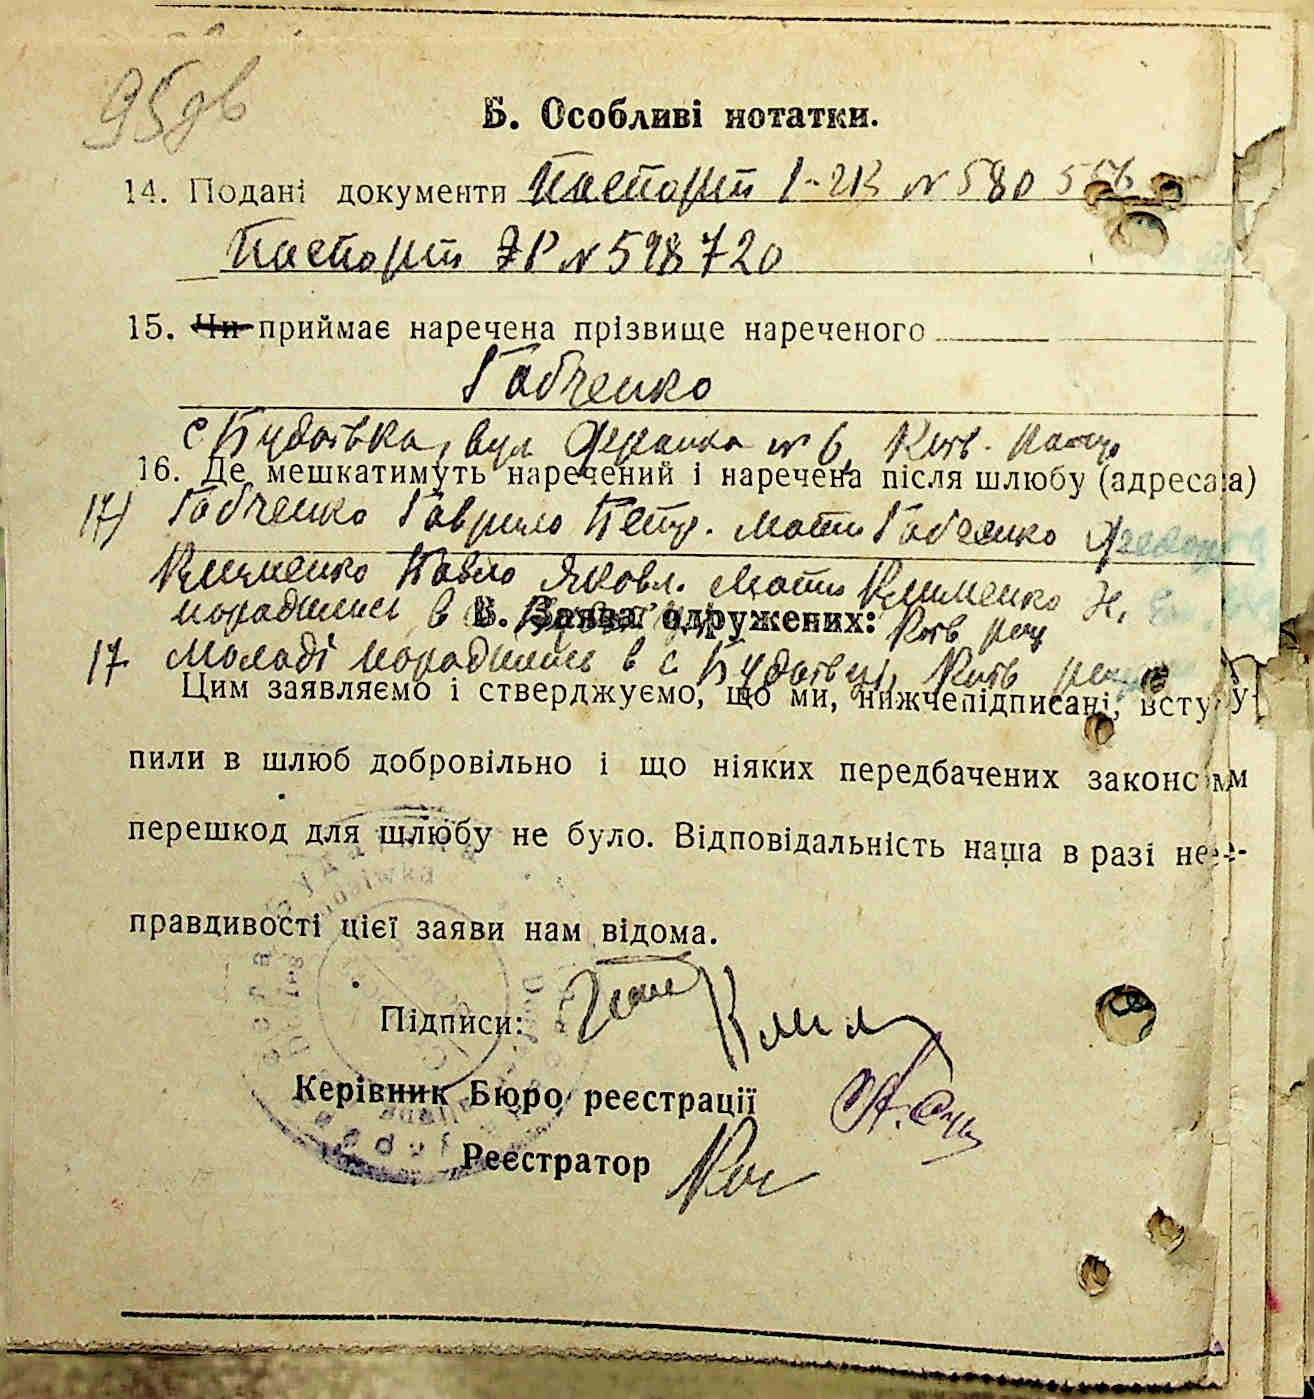 95дв
Б. Особливі нотатки.
14. Подані документи Паспорт І-2В № 580 556
Паспорт № 598720
15. Чи приймає наречена прізвище нареченого
Габченко
с Будаївка, вул Франка № 6, Київ.
16. Де мешкатимуть наречений і наречена після шлюбу (адреса)
17) Габченко Гаврило Петр. мати Габченко
Клименко Павло Яковл. мати Клименко Н.
народились в с
В. Заява одружених:
Київ рай
17 Молоді народились в с Будаївці, Київ району
Цим заявляємо і стверджуємо, що ми, нижчепідписані, всту
пили в шлюб добровільно і що ніяких передбачених законом
перешкод для шлюбу не було. Відповідальність наша в разі не-
правдивості цієї заяви нам відома.
Підписи:
Керівник Бюро реєстрації
Реєстратор